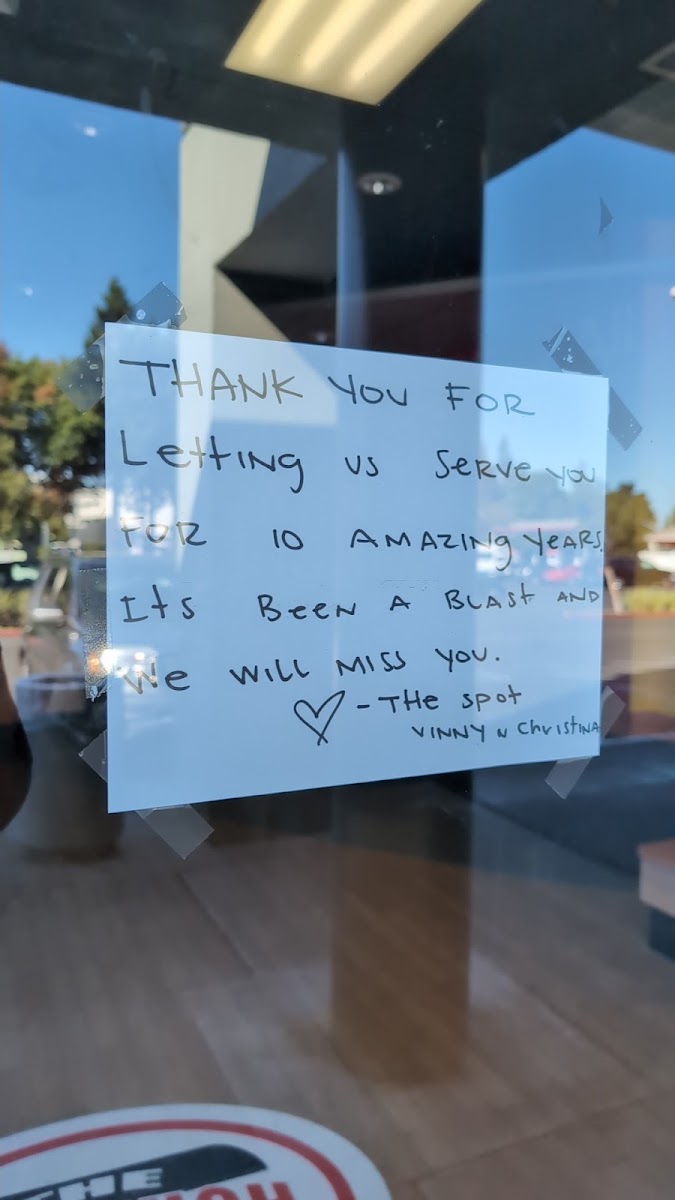 THANK YOU FOR
Letting us serve you
FOR 10 AMAZING YEARS.
Its Been A Blast AND
We will miss you.
♡ - THE Spot
VINNY N ChristINA
THE